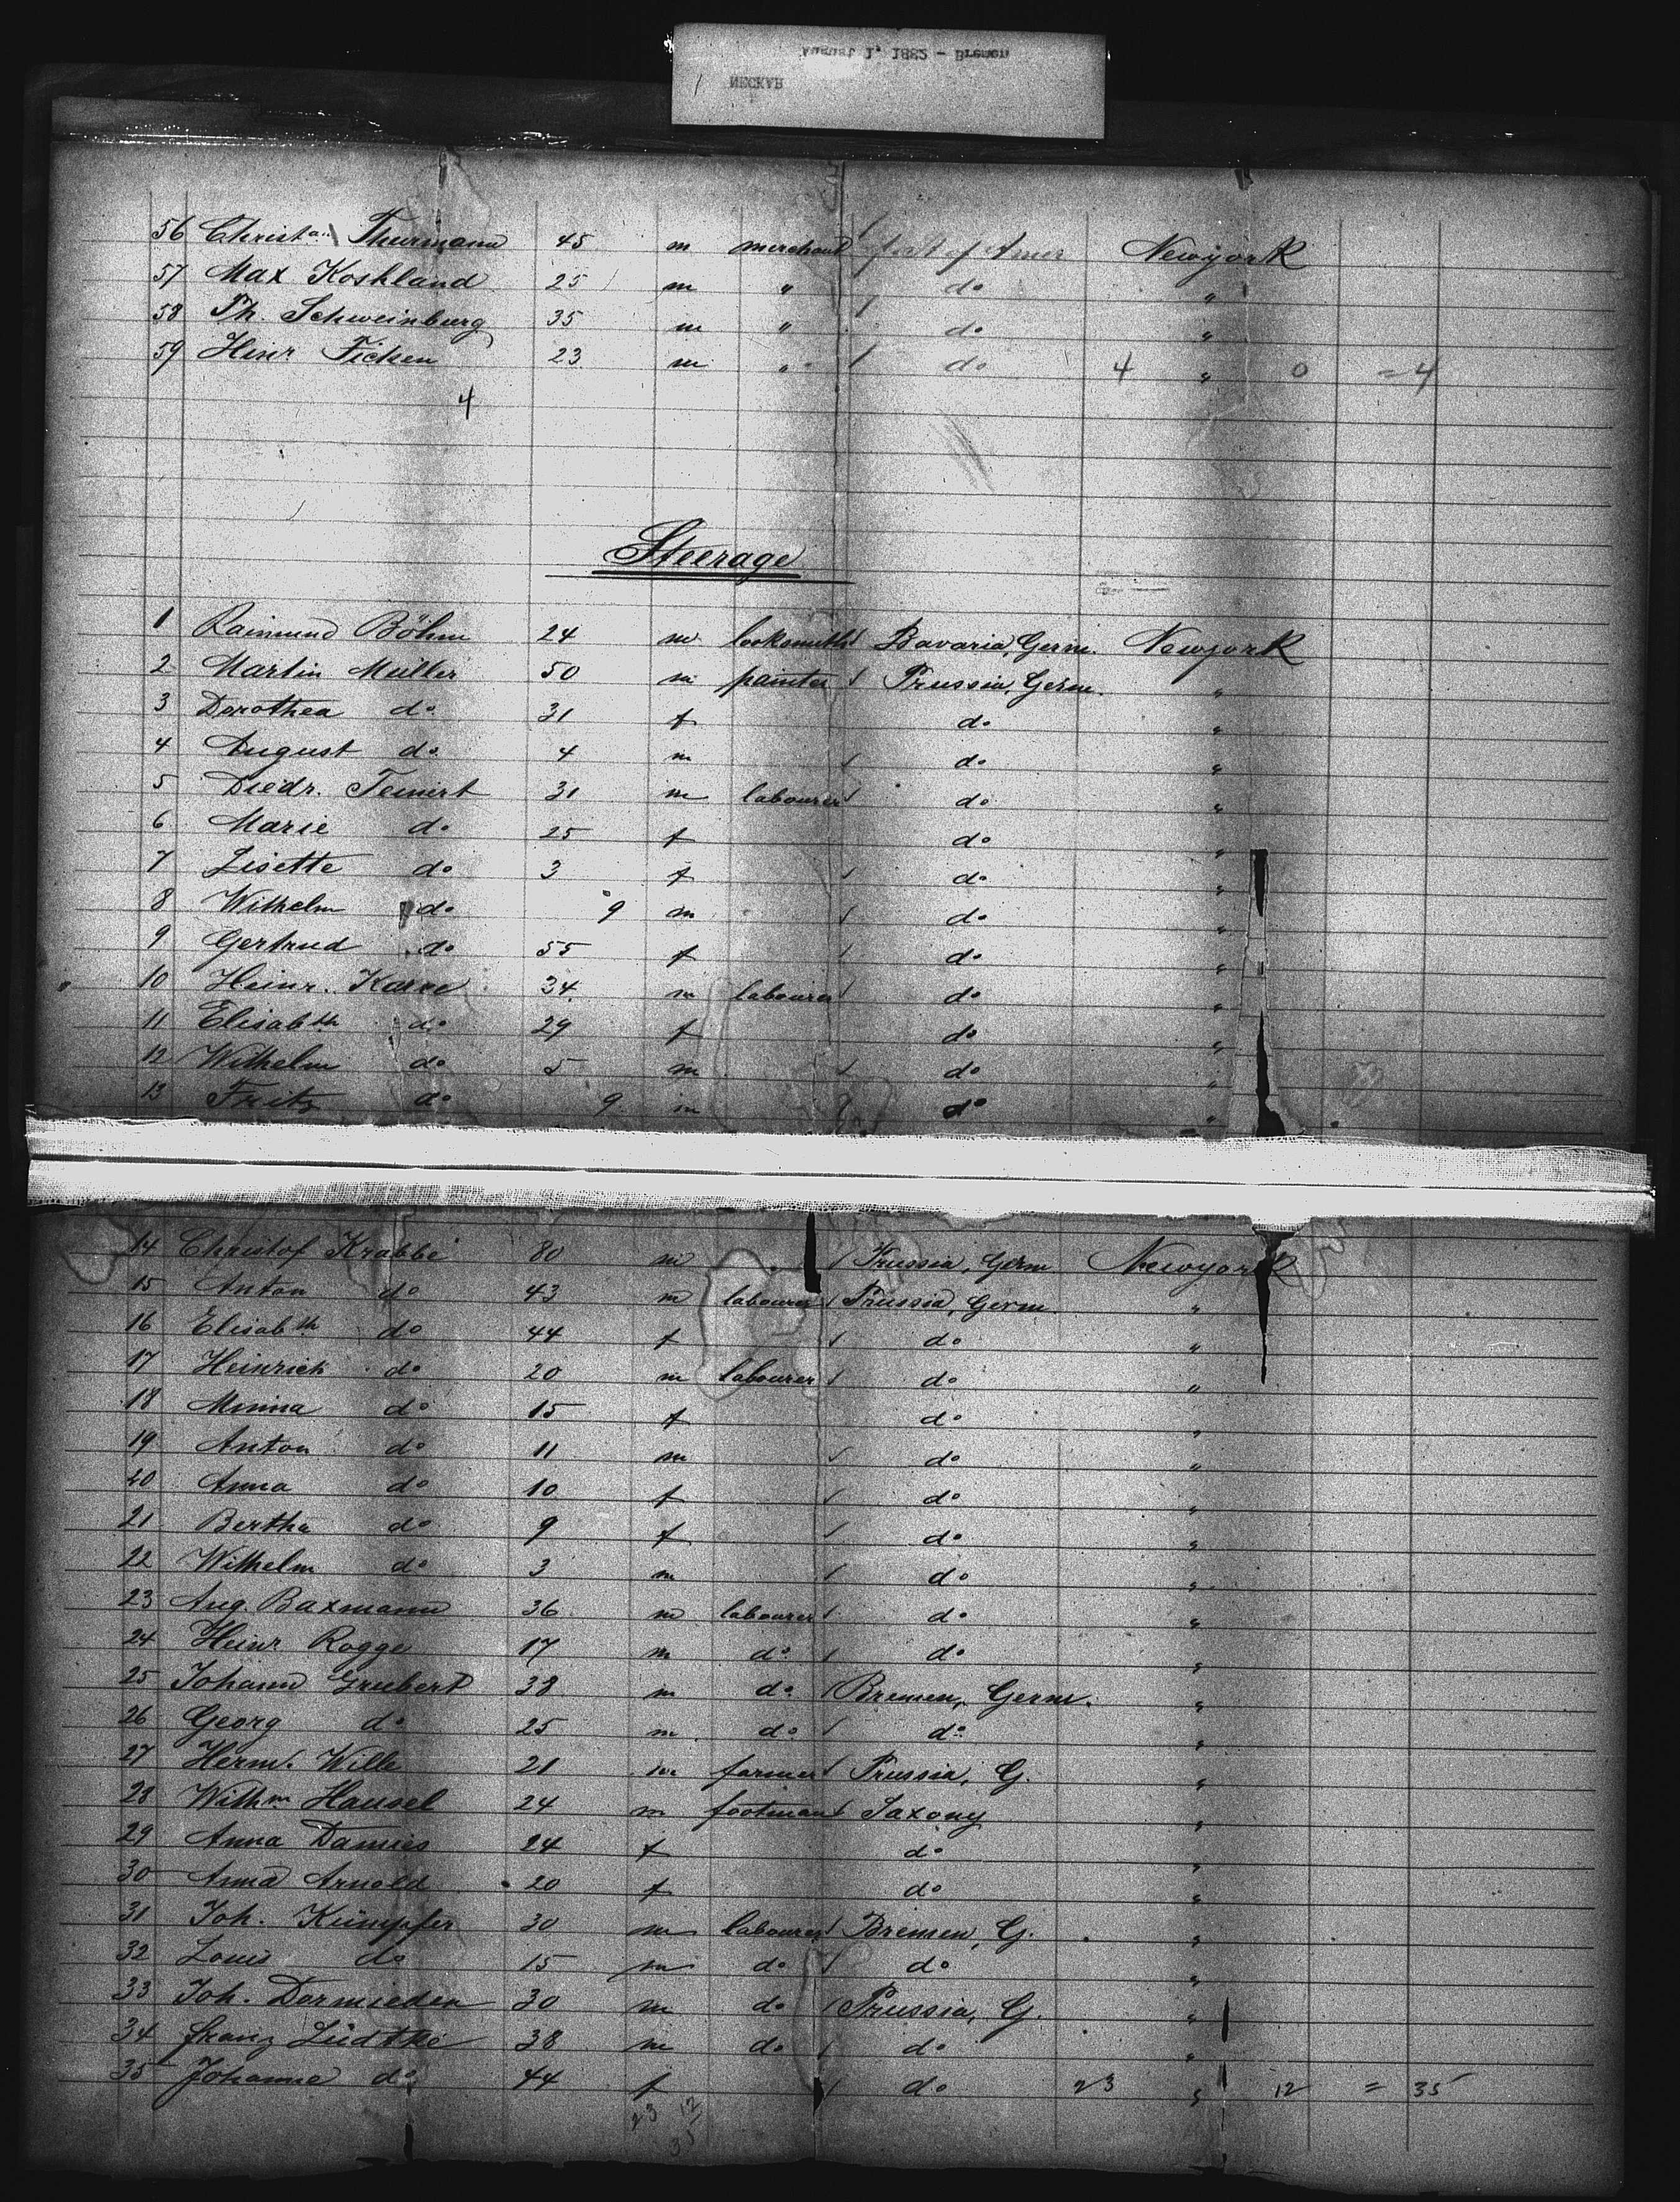 August 1, 1882 - Bremen
NECKAR
56 Christan Thurmann 45 m merchant Newyork
57 Max Koshland 25 m " do "
58 Th. Schweinburg 35 m " do "
59 Heinr Ficken 23 m " do 4 " 0 = 4
4
Steerage
1 Raimund Böhm 24 m locksmith Bavaria, Germ. Newyork
2 Martin Müller 50 m painter Prussia, Germ. "
3 Dorothea do 31 f do "
4 August do 4 m do "
5 Diedr. Teinert 31 m labourer do "
6 Marie do 25 f do "
7 Lisette do 3 f do "
8 Wilhelm do 9 m do "
9 Gertrud do 55 f do "
10 Heinr. Karve 34 m labourer do "
11 Elisabth do 29 f do "
12 Wilhelm do 5 m do "
13 Fritz do 9 m do "
14 Christof Krabbe 80 m Prussia, Germ Newyork
15 Anton do 43 m labourer Prussia, Germ. "
16 Elisabth do 44 f do "
17 Heinrich do 20 m labourer do "
18 Minna do 15 f do "
19 Anton do 11 m do "
20 Anna do 10 f do "
21 Bertha do 9 f do "
22 Wilhelm do 3 m do "
23 Aug. Baxmann 36 m labourer do "
24 Heinr Rogge 17 m do do "
25 Johann Grubert 38 m do Bremen, Germ. "
26 Georg do 25 m do do "
27 Herm. Wille 21 m farmer Prussia, G. "
28 Wilhm Hansel 24 m footman Saxony "
29 Anna Damies 24 f do "
30 Anna Arnold 20 f do "
31 Joh. Kümpfer 30 m labourer Bremen, G. "
32 Louis do 15 m do do "
33 Joh. Dormieden 30 m do Prussia, G. "
34 Franz Lüdtke 38 m do do "
35 Johanne do 44 f do 23 " 12 = 35
23 12
35